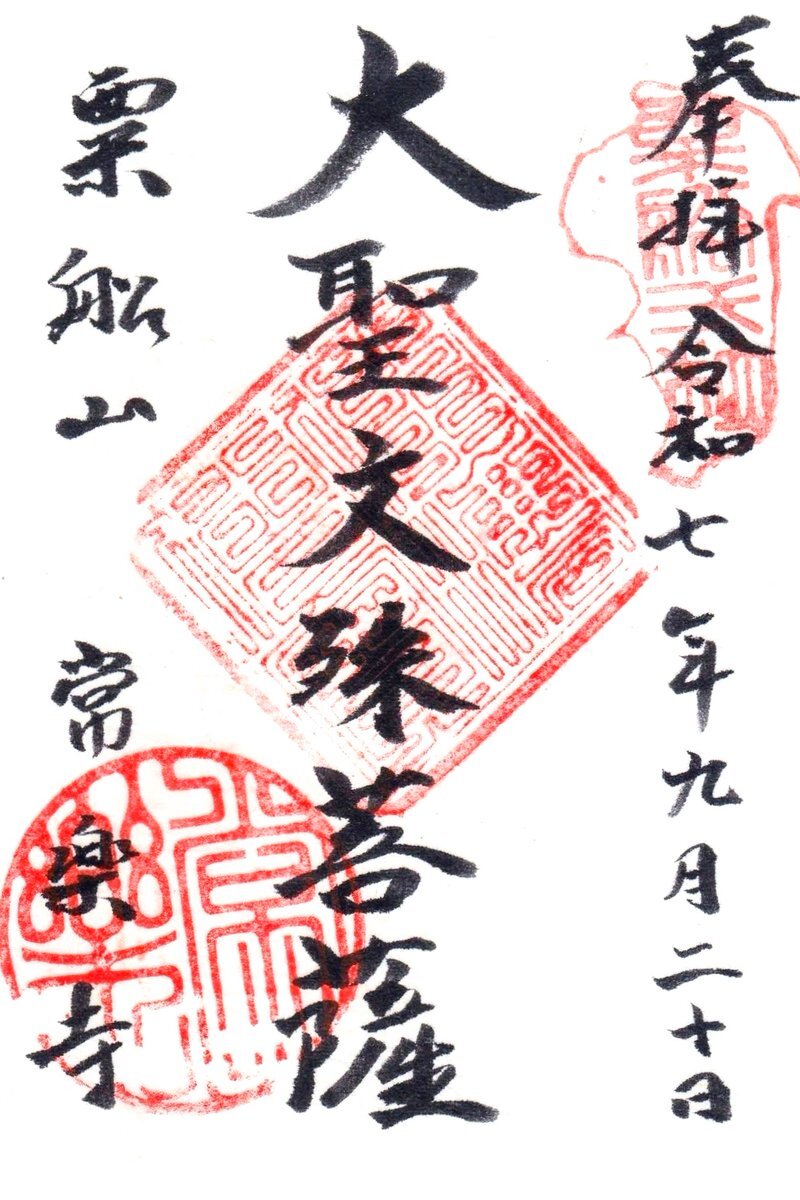 奉拝 令和七年九月二十日
大聖文殊菩薩
粟船山 常楽寺